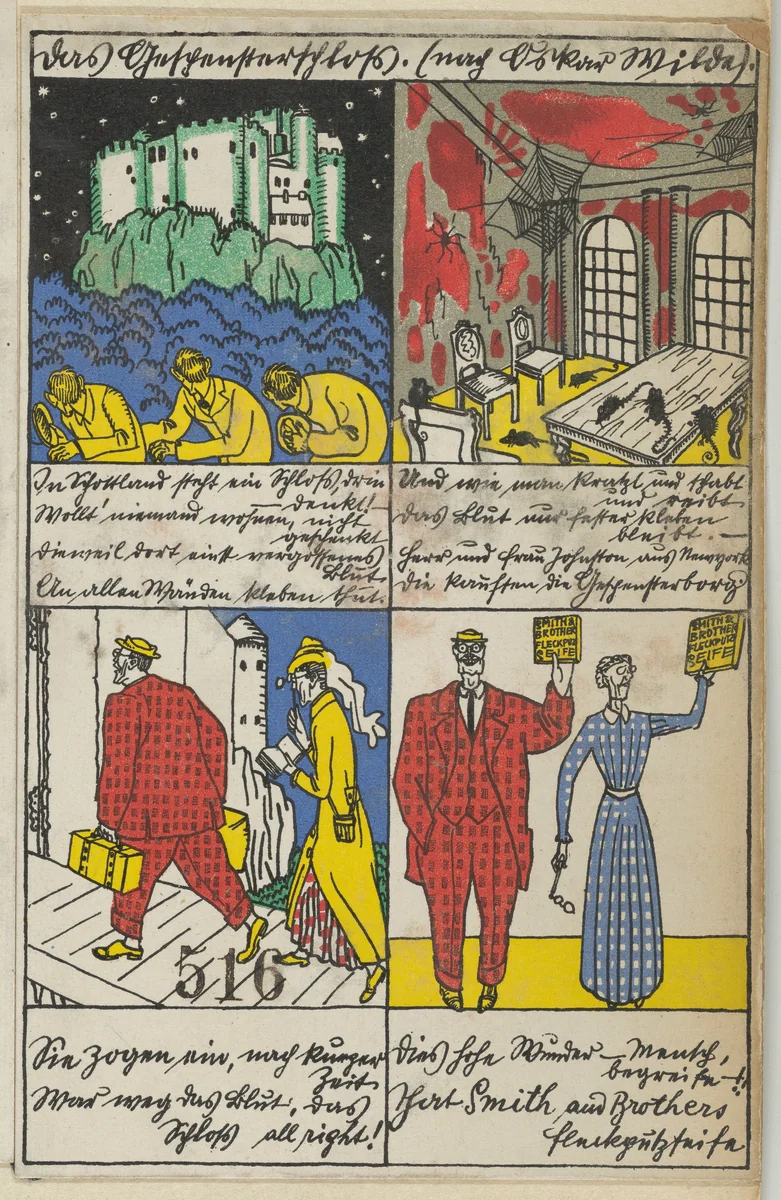 Das Gespensterschloss. (nach Oskar Wilde).
In Schottland steht ein Schloss, drin
denkt!—
Wollt' niemand wohnen, nicht
geschenkt
Dieweil dort einst vergossenes
Blut
An allen Wänden kleben thut.
Und wie man kratzt und schabt
und reibt
Das Blut nur fester kleben
bleibt. —
Herr und Frau Johnston aus Newyork
Die kauften die Gespensterborg
SMITH &
BROTHER
FLECKPUTZ
SEIFE
SMITH &
BROTHER
FLECKPUTZ
SEIFE
516
Sie zogen ein, nach kurzer
Zeit
War weg das Blut, das
Schloss all right!
Dies hohe Wunder — Mensch,
begreife —!!
That Smith and Brothers
Fleckputzseife